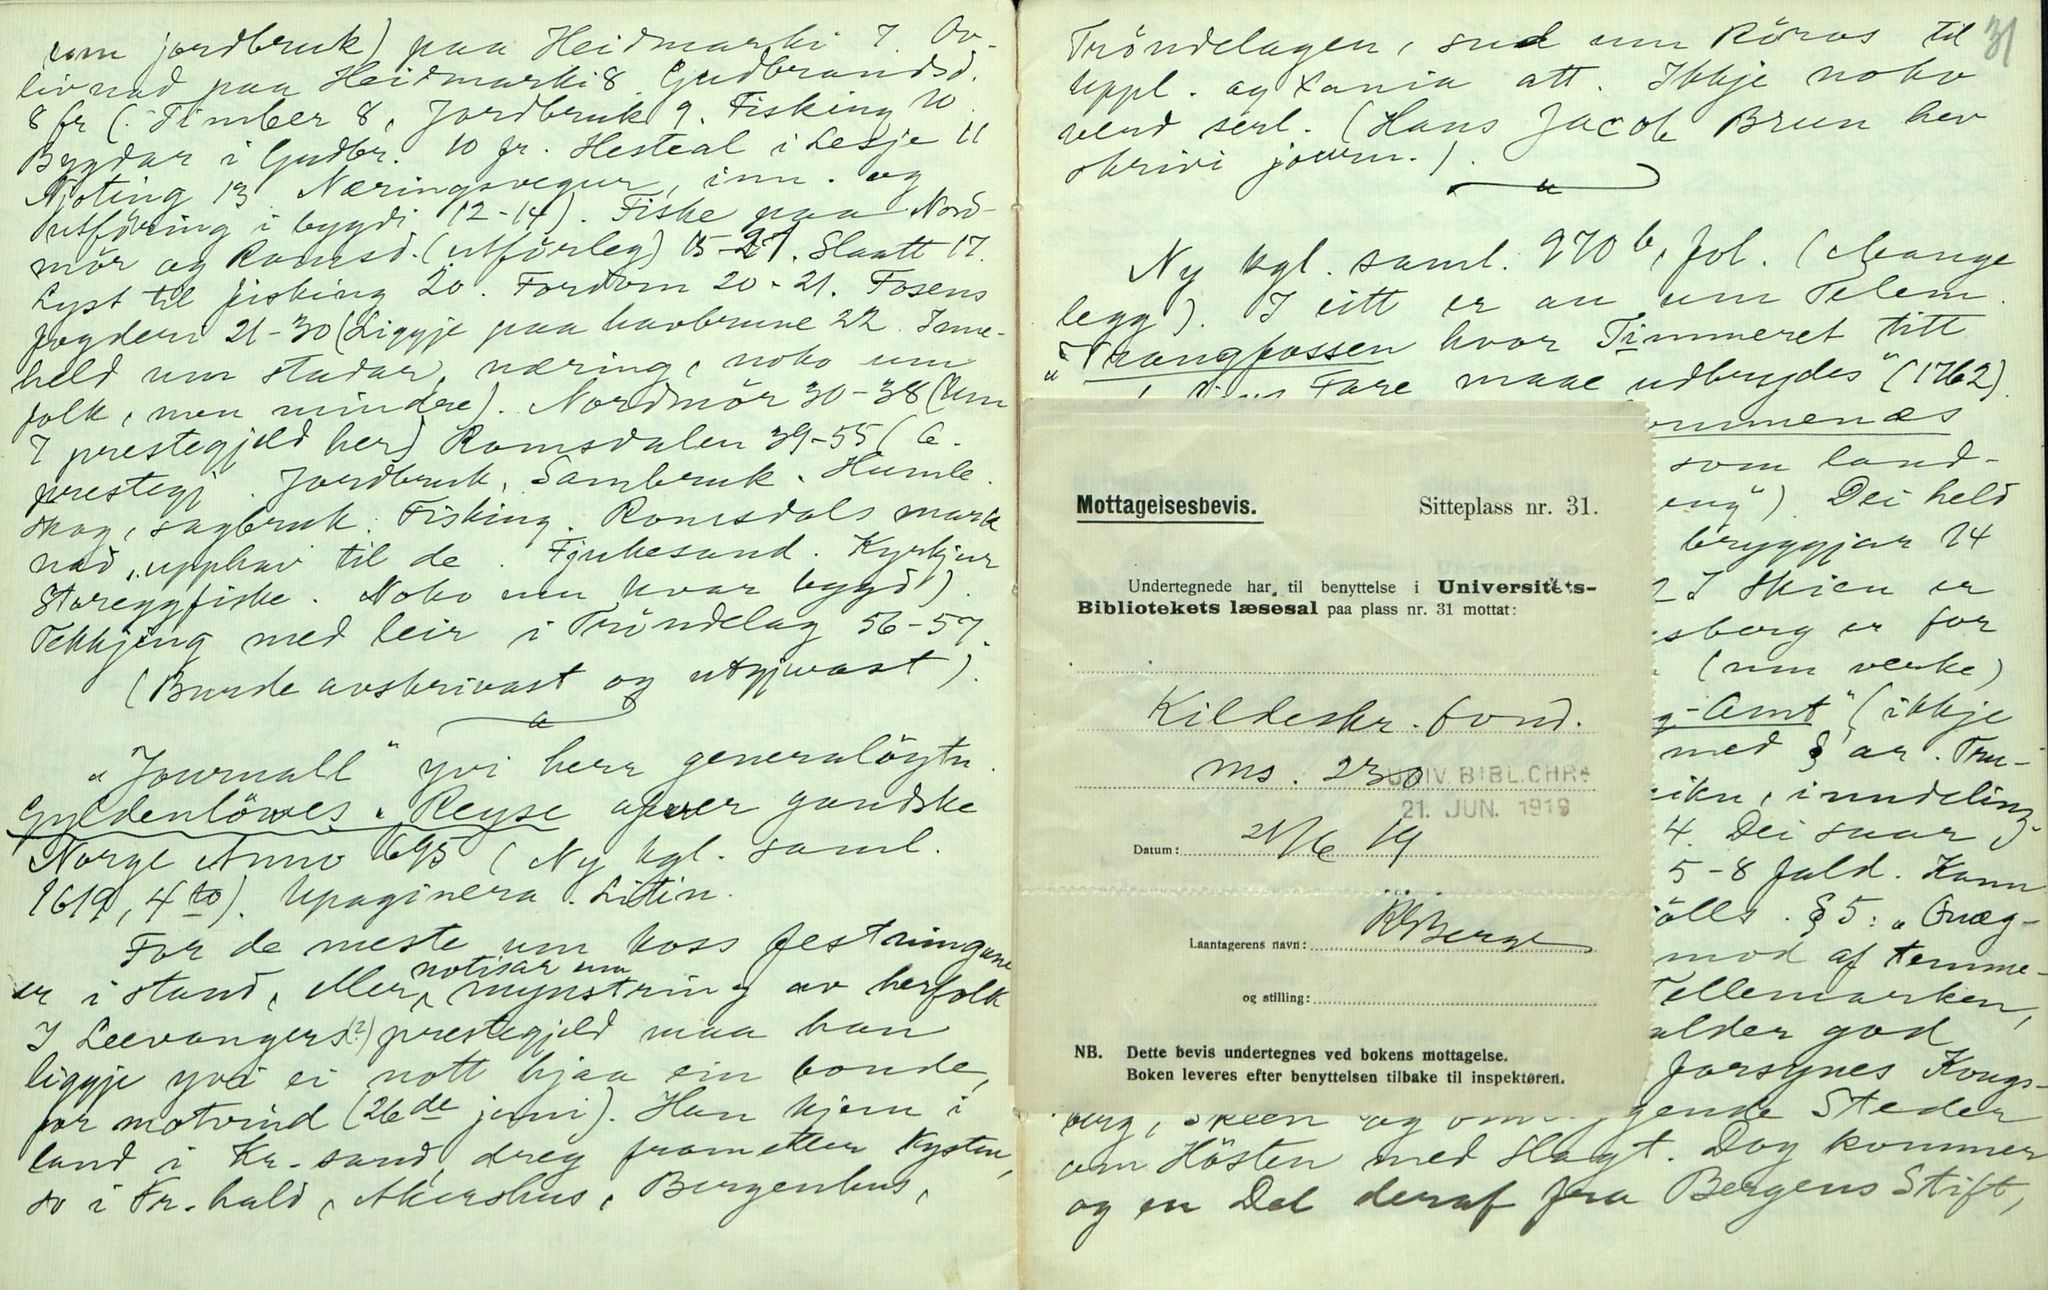 som jordbruk) paa Heidmarki 7. Ov-
livnad paa Heidmarki 8. Gudbrandsd.
8 fr (. Timber 8, Jordbruk 9. Fisking 10
Bygdar i Gudbr. 10 fr. Hesteal i Lesje 11
Njoting 13 Næringsvegur, inn. og
utföring i bygdi 12-14). Fiske paa Nord-
mör og Romsd. (utförleg) 15-21. Slaatt 17.
Lyst til fisking 20. Fordom 20-21. Fosens
fogderi 21-30 (Liggje paa havbrune 22. Inne-
held um stadar, næring, noko um
folk, men mindre). Nordmör 30-38 (Um
7 prestegjeld her) Romsdalen 39-55 (6.
prestegj. Jordbruk, Sambruk. Humle.
skog, sagbruk. Fisking. Romsdals mark
nad, upphav til de. Fjukesund. Kyrkjur
Storeggfiske. Noko um kvar bygd).
Tekkjing med leir i Tröndelag 56-57.
(Burde avskrivast og utgjevast).
"Journall" yvi herr generallöytn.
Gyldenlöwes "Reyse ofuer gandske
Norge Anno 1695 (Ny kgl. saml.
1619, 4to). Upaginera. Litin.
For de meste um koss festningane
er i stand, eller notisar um mynstring av herfolk
I Leevangers(?) prestegjeld maa han
liggje yvi ei nott hjaa ein bonde,
for motvind (26de juni). Han kjem i
land i Kr.sand, dreg frametter Kysten,
so i Fr.hald, Akershus, Bergenhus,
31
Tröndelagen, sud um Röros til
Uppl. og Xania att. Ikkje noko
verd serl. (Hans Jacob Brun hev
skrivi journ.).
Ny kgl. saml. 970 b, fol. (Mange
legg). I eitt er au um Telem.
"Trangfossen hvor Timmeret titt
Fare maae udbrydes" (1762).
ommenæs
som land-
eng"). Dei held
bryggjar 14
2 I Skien er
sberg er for
(um verke)
g-Amt" (ikkje
med § ar. Tru-
ikn, inndeling
4. Dei svar
5-8 fald. Kann
ölls. § 5: "Qvæg-
mod af temme-
Tellemarken,
alder god
forsynes Kongs-
berg, Skeen og omliggende Steder
om Hösten med Slagt. Dog kommer
og en Del deraf fra Bergens Stift,
Mottagelsesbevis. Sitteplass nr. 31.
Undertegnede har til benyttelse i Universitets-
Bibliotekets læsesal paa plass nr. 31 mottat:
Kildeskr. fond.
ms. 230
UNIV. BIBL. CHRA
21. JUN. 1919
Datum: 21/6 19
Laantagerens navn: RBerge
og stilling:
NB. Dette bevis undertegnes ved bokens mottagelse.
Boken leveres efter benyttelsen tilbake til inspektøren.